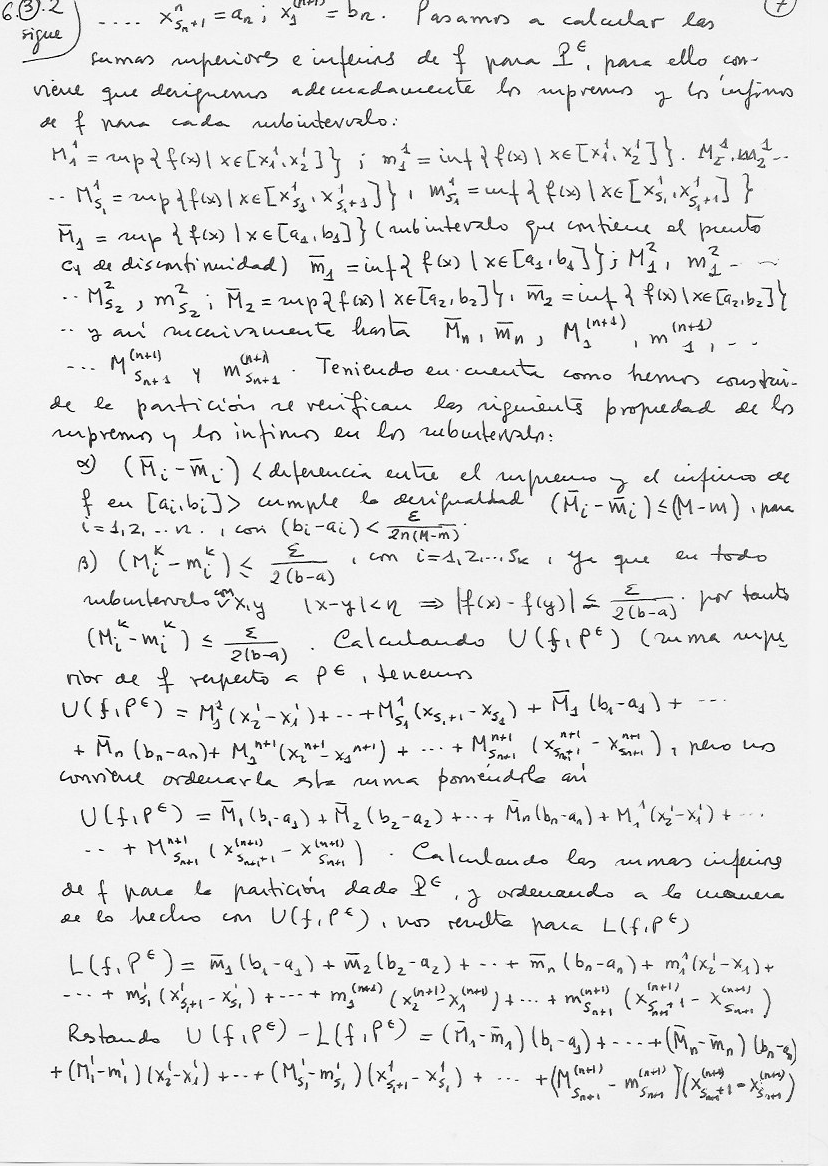 6.③.2 .... x^n_{s_n+1} = a_n ; x_1^{(n+1)} = b_n. Pasamos a calcular las ⑦
sigue
sumas superiores e inferirs de f para P^ϵ, para ello con-
viene que designemos adecuadamente los supremos y los ínfimos
de f para cada subintervalo:
M_1^1 = sup{f(x) | x∈[x_1^1, x_2^1]} ; m_1^1 = inf{f(x) | x∈[x_1^1, x_2^1]}. M_2^1, m_2^1 ...
.. M_{s_1}^1 = sup{f(x) | x∈[x_{s_1}^1, x_{s_1+1}^1]}, m_{s_1}^1 = inf{f(x) | x∈[x_{s_1}^1, x_{s_1+1}^1]}
M̄_1 = sup{f(x) | x∈[a_1, b_1]} (subintervalo que contiene el punto
c_1 de discontinuidad) m̄_1 = inf{f(x) | x∈[a_1, b_1]} ; M_1^2, m_1^2 ...
.. M_{s_2}^2, m_{s_2}^2 ; M̄_2 = sup{f(x) | x∈[a_2, b_2]}, m̄_2 = inf{f(x) | x∈[a_2, b_2]}
.. y así sucesivamente hasta M̄_n, m̄_n, M_1^{(n+1)}, m_1^{(n+1)}, ...
... M_{s_{n+1}}^{(n+1)} y m_{s_{n+1}}^{(n+1)}. Teniendo en cuenta como hemos construi-
do la partición se verifican las siguients propiedad de los
supremos y los ínfimos en los subintervalo:
α) (M̄_i - m̄_i) <diferencia entre el supremo y el ínfimo de
f en [a_i, b_i]> cumple la desigualdad (M̄_i - m̄_i) ≤ (M-m), para
i = 1, 2, .. n., con (b_i - a_i) < ε/2n(M-m).
β) (M_i^k - m_i^k) ≤ ε/2(b-a), con i = 1, 2, ... s_k, ya que en todo
subintervalo con x, y |x-y| < η ⇒ |f(x) - f(y)| ≤ ε/2(b-a). por tanto
(M_i^k - m_i^k) ≤ ε/2(b-a). Calculando U(f, P^ϵ) (suma supe-
rior de f respecto a P^ϵ, tenemos
U(f, P^ϵ) = M_1^1(x_2^1 - x_1^1) + ... + M_{s_1}^1(x_{s_1+1} - x_{s_1}) + M̄_1(b_1 - a_1) + ...
+ M̄_n(b_n - a_n) + M_1^{n+1}(x_2^{n+1} - x_1^{n+1}) + ... + M_{s_{n+1}}^{n+1}(x_{s_{n+1}+1}^{n+1} - x_{s_{n+1}}^{n+1}), pero nos
conviene ordenarla esta suma poniéndola así
U(f, P^ϵ) = M̄_1(b_1 - a_1) + M̄_2(b_2 - a_2) + ... + M̄_n(b_n - a_n) + M_1^1(x_2^1 - x_1^1) + ...
.. + M_{s_{n+1}}^{n+1}(x_{s_{n+1}+1}^{(n+1)} - x_{s_{n+1}}^{(n+1)}). Calculando las sumas inferirs
de f para la partición dada P^ϵ, y ordenando a la manera
de lo hecho con U(f, P^ϵ), nos resulta para L(f, P^ϵ)
L(f, P^ϵ) = m̄_1(b_1 - a_1) + m̄_2(b_2 - a_2) + ... + m̄_n(b_n - a_n) + m_1^1(x_2^1 - x_1) +
... + m_{s_1}^1(x_{s_1+1}^1 - x_{s_1}^1) + ... + m_1^{(n+1)}(x_2^{(n+1)} - x_1^{(n+1)}) + ... + m_{s_{n+1}}^{(n+1)}(x_{s_{n+1}+1}^{(n+1)} - x_{s_{n+1}}^{(n+1)})
Restando U(f, P^ϵ) - L(f, P^ϵ) = (M̄_1 - m̄_1)(b_1 - a_1) + ... + (M̄_n - m̄_n)(b_n - a_n)
+ (M_1^1 - m_1^1)(x_2^1 - x_1^1) + ... + (M_{s_1}^1 - m_{s_1}^1)(x_{s_1+1}^1 - x_{s_1}^1) + ... + (M_{s_{n+1}}^{(n+1)} - m_{s_{n+1}}^{(n+1)})(x_{s_{n+1}+1}^{(n+1)} - x_{s_{n+1}}^{(n+1)})